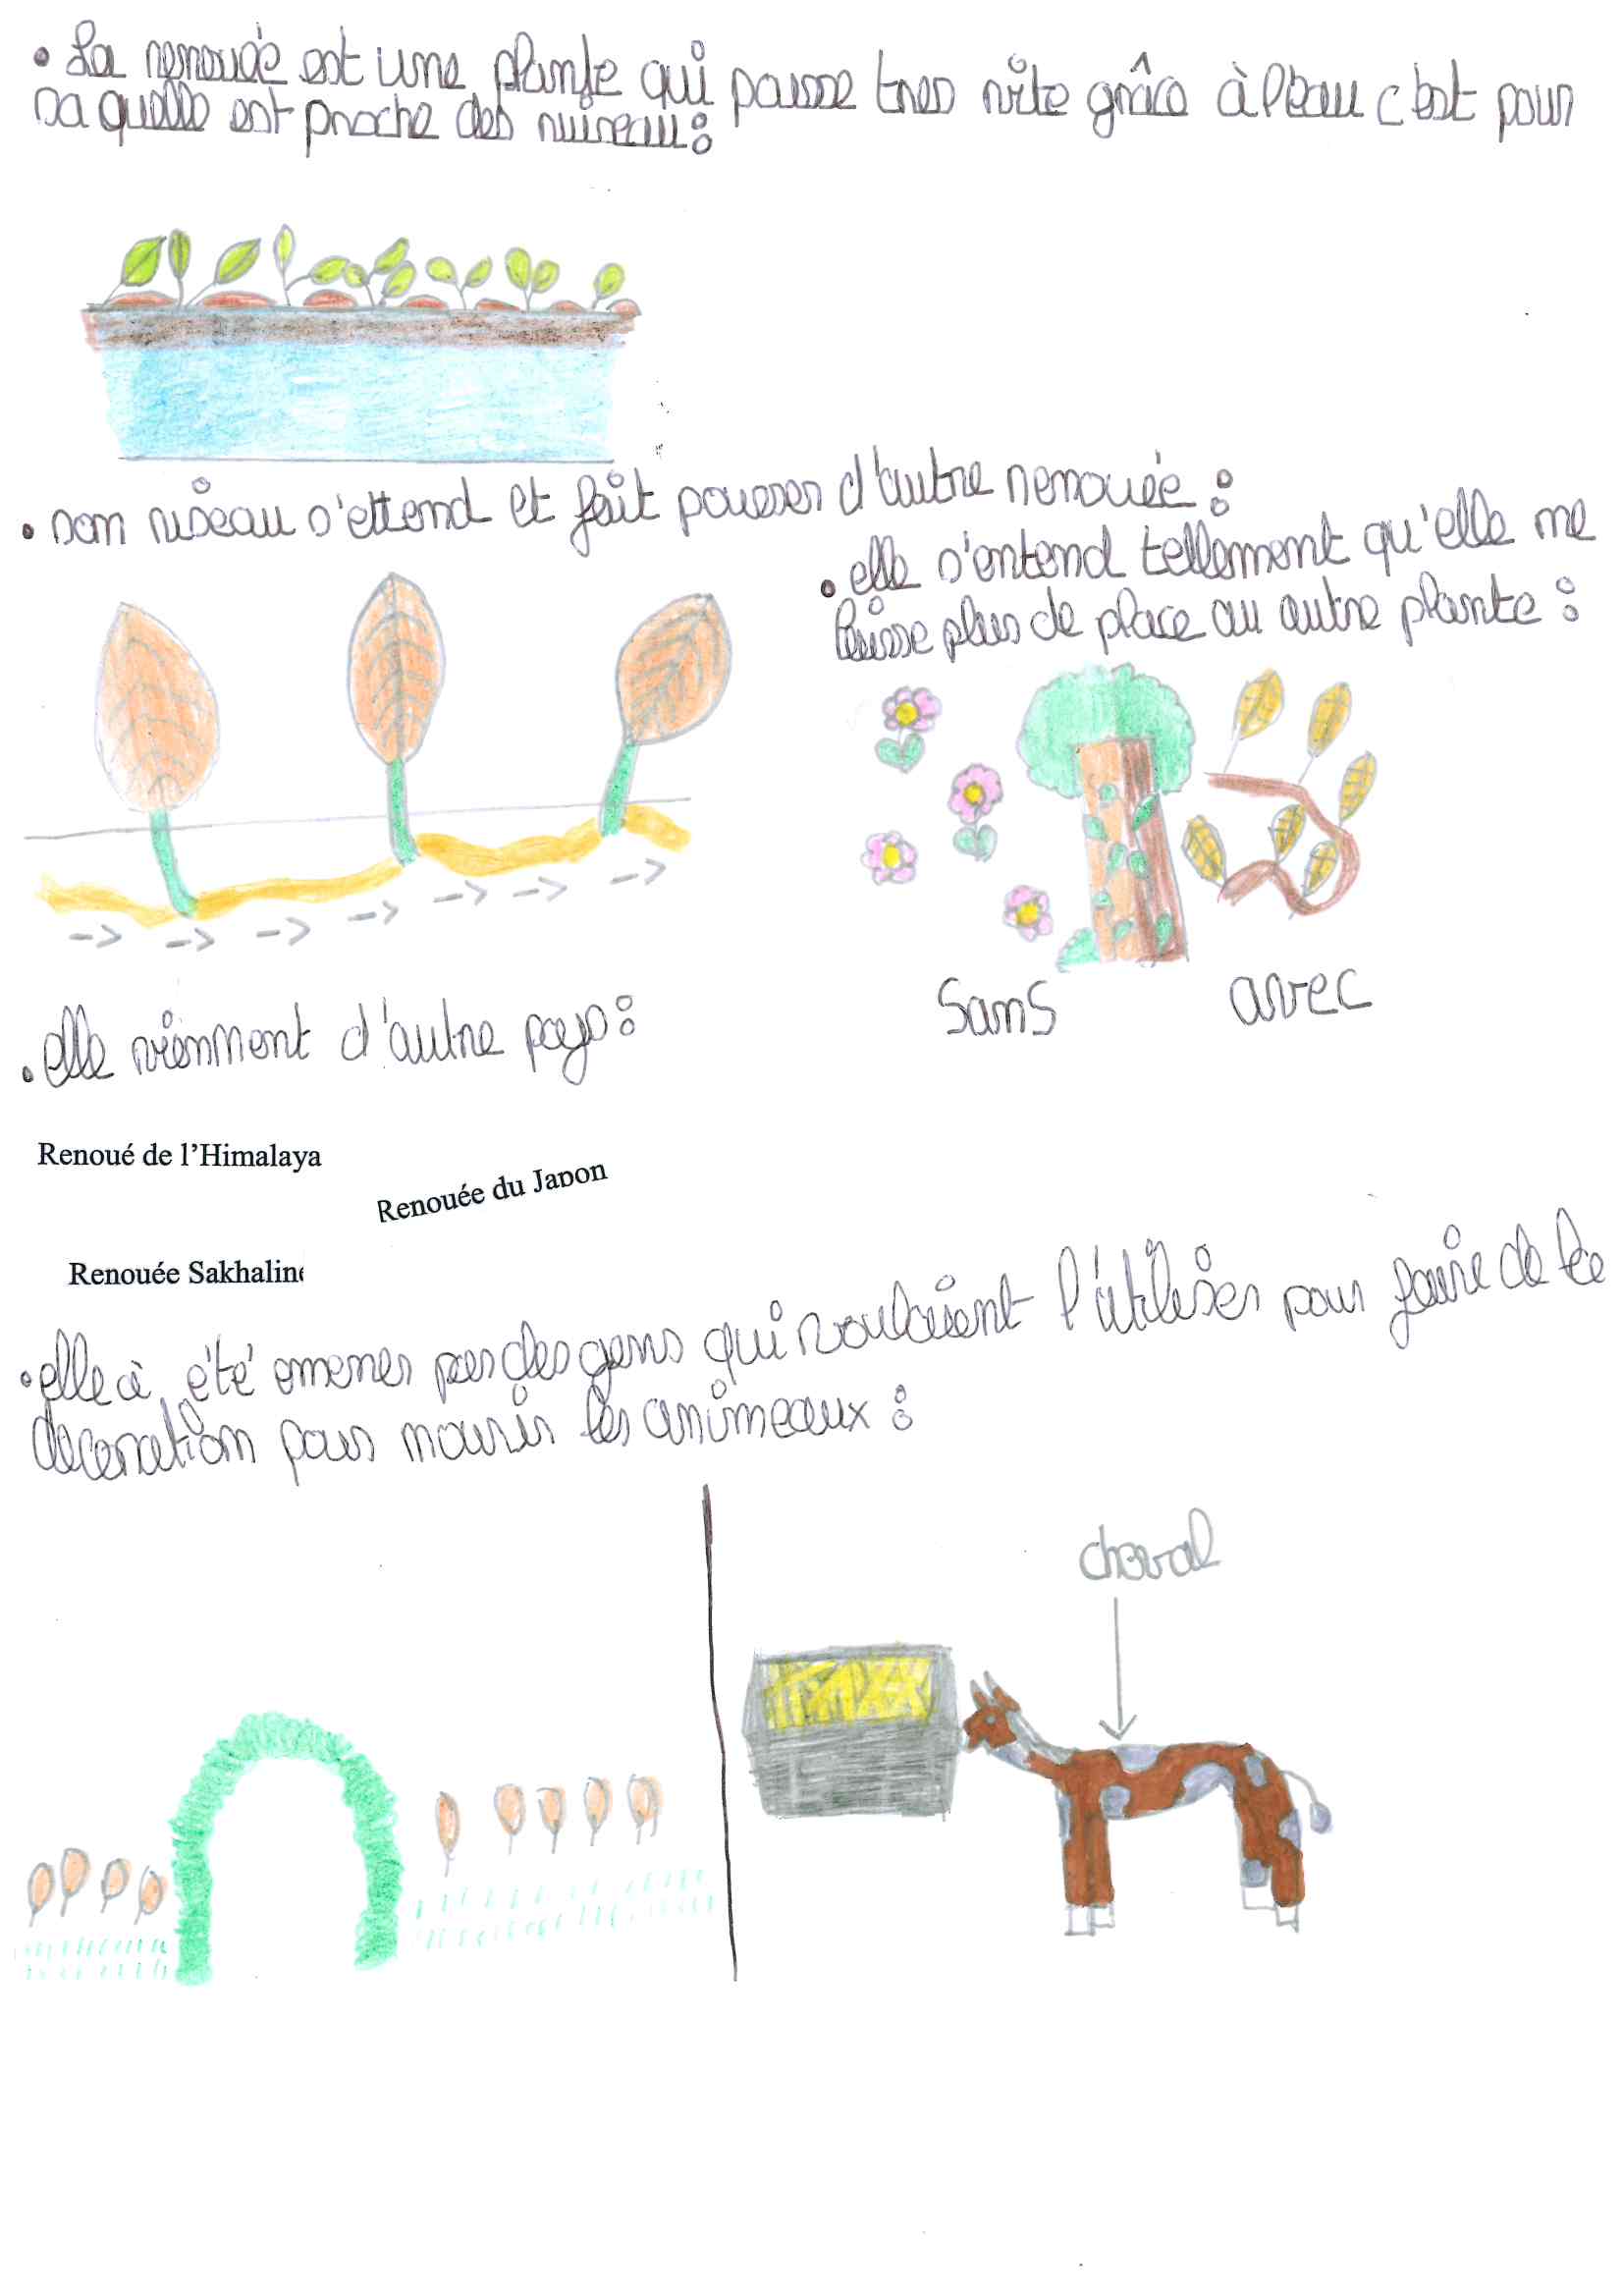 • La renouée est une plante qui pousse tres vite grâce à l'eau c'est pour
sa quelle est proche des ruiseau :
• son ruseau s'ettend et fait pousser d'autre renouée :
• elle s'entend tellement qu'elle ne
laisse plus de place au autre plante :
sans avec
• elle viennent d'autre pays :
Renoué de l'Himalaya
Renouée du Japon
Renouée Sakhaline
• elle à été emener par des gens qui voulaient l'utiliser pour faire de la
decoration pour nourir les animeaux :
cheval